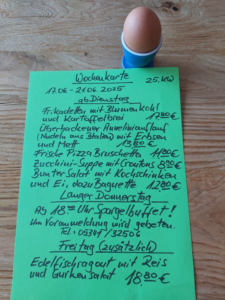 Wochenkarte 25. KW
17.06 - 21.06 2025
ab Dienstag
Frikadellen mit Blumenkohl
und Kartoffelbrei 17,80 €
Überbackener Auflauf
(Nudeln aus Italien) mit Erbsen
und Mett 13,80 €
Frische Pizza Bruschetta 11,80 €
Zucchini-Suppe mit Croutons 6,90 €
Bunter Salat mit Kochschinken
und Ei, dazu Baguette 12,80 €
Langer Donnerstag
Ab 18 Uhr Spargelbuffet!
Um Voranmeldung wird gebeten.
Tel.: 05341/32506
Freitag (zusätzlich)
Edelfischragout mit Reis
und Gurkensalat 18,80 €